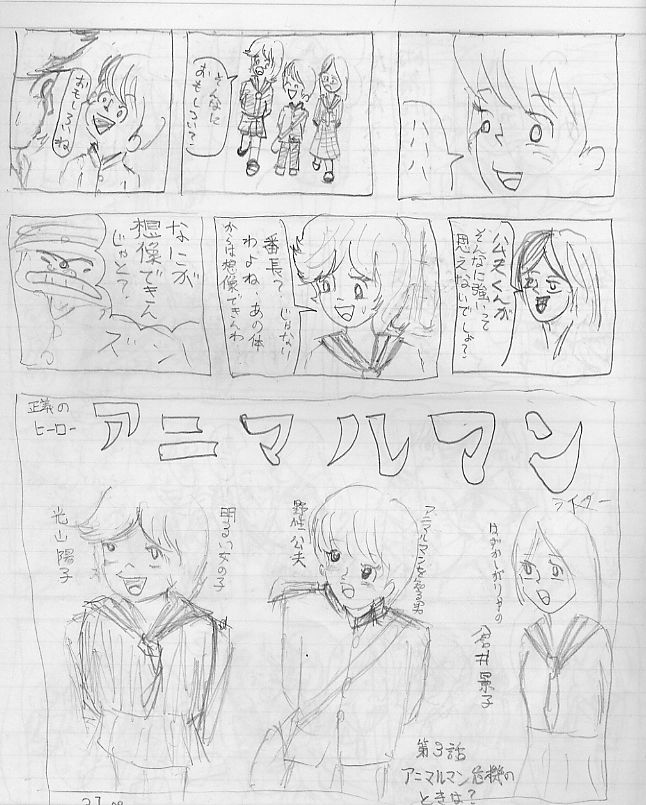 ハハハ
そんなに
おもしろい？
おもしろいね
公夫くんが
そんなに強いって
思えないでしょ？
番長？、じゃない
わよね、あの体
からは想像できんわ、
なにが
想像できん
じゃと？
ズン
正義の
ヒーロー
アニマルマン
ライター
はずかしがりやの
倉井景子
アニマルマンになる男
野性公夫
明るい女の子
光山陽子
第3話
アニマルマン危機の
ときな？